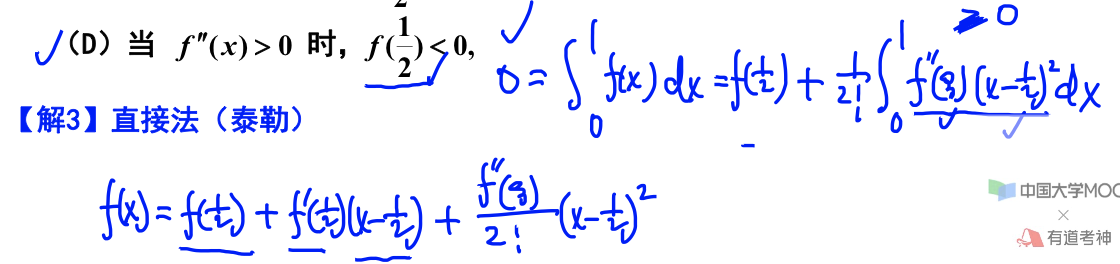 ✓(D) 当 f″(x) > 0 时, f(1/2) < 0,
0 = ∫₀¹ f(x) dx = f(1/2) + 1/2! ∫₀¹ f″(ξ)(x-1/2)² dx
> 0
【解3】直接法（泰勒）
f(x) = f(1/2) + f′(1/2)(x-1/2) + f″(ξ)/2! (x-1/2)²
中国大学MOO
×
有道考神